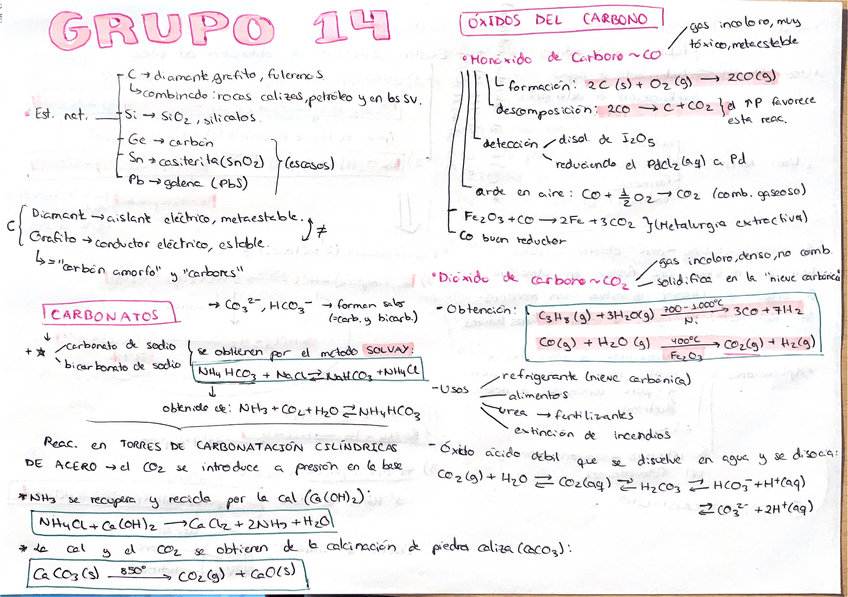 GRUPO 14
• Est. nat.
C → diamante, grafito, fulerenos
↳ combinado: rocas calizas, petróleo y en los SV.
Si → SiO2, silicatos.
Ge → carbón
Sn → casiterita (SnO2)
Pb → galena (PbS)
(escasos)
C { Diamant → aislant eléctrico, metaestable.
Grafito → conductor eléctrico, estable.
≠
↳ = "carbón amorfo" y "carbores"
CARBONATOS
→ CO3²⁻, HCO3⁻ → forman sales
(=carb. y bicarb.)
+ ★ carbonato de sodio
bicarbonato de sodio
se obtienen por el metodo SOLVAY:
NH4HCO3 + NaCl ⇄ NaHCO3 + NH4Cl
↓
obtenido de: NH3 + CO2 + H2O ⇄ NH4HCO3
Reac. en TORRES DE CARBONATACIÓN CILÍNDRICAS
DE ACERO → el CO2 se introduce a presión en la base
* NH3 se recupera y recicla por la cal (Ca(OH)2):
NH4Cl + Ca(OH)2 → CaCl2 + 2NH3 + H2O
* La cal y el CO2 se obtienen de la calcinación de piedra caliza (CaCO3):
CaCO3(s) —850°→ CO2(g) + CaO(s)
ÓXIDOS DEL CARBONO
• Monóxido de Carbono ~ CO
gas incoloro, muy
tóxico, metaestable
formación: 2C(s) + O2(g) → 2CO(g)
descomposición: 2CO → C + CO2 } el ↑P favorece
esta reac.
detección
disol. de I2O5
reduciendo el PdCl2(aq) a Pd
arde en aire: CO + ½O2 → CO2 (comb. gaseoso)
Fe2O3 + CO → 2Fe + 3CO2 } (Metalurgia extractiva)
CO buen reductor
• Dióxido de carbono ~ CO2
gas incoloro, denso, no comb.
solidifica en la "nieve carbónica
- Obtención:
C3H8(g) + 3H2O(g) —700-1000°C / Ni→ 3CO + 7H2
CO(g) + H2O(g) —400°C / Fe2O3→ CO2(g) + H2(g)
- Usos
refrigerante (nieve carbónica)
alimentos
urea → fertilizantes
extinción de incendios
- Óxido ácido débil que se disuelve en agua y se disocia:
CO2(g) + H2O ⇄ CO2(aq) ⇄ H2CO3 ⇄ HCO3⁻ + H⁺(aq)
⇄ CO3²⁻ + 2H⁺(aq)